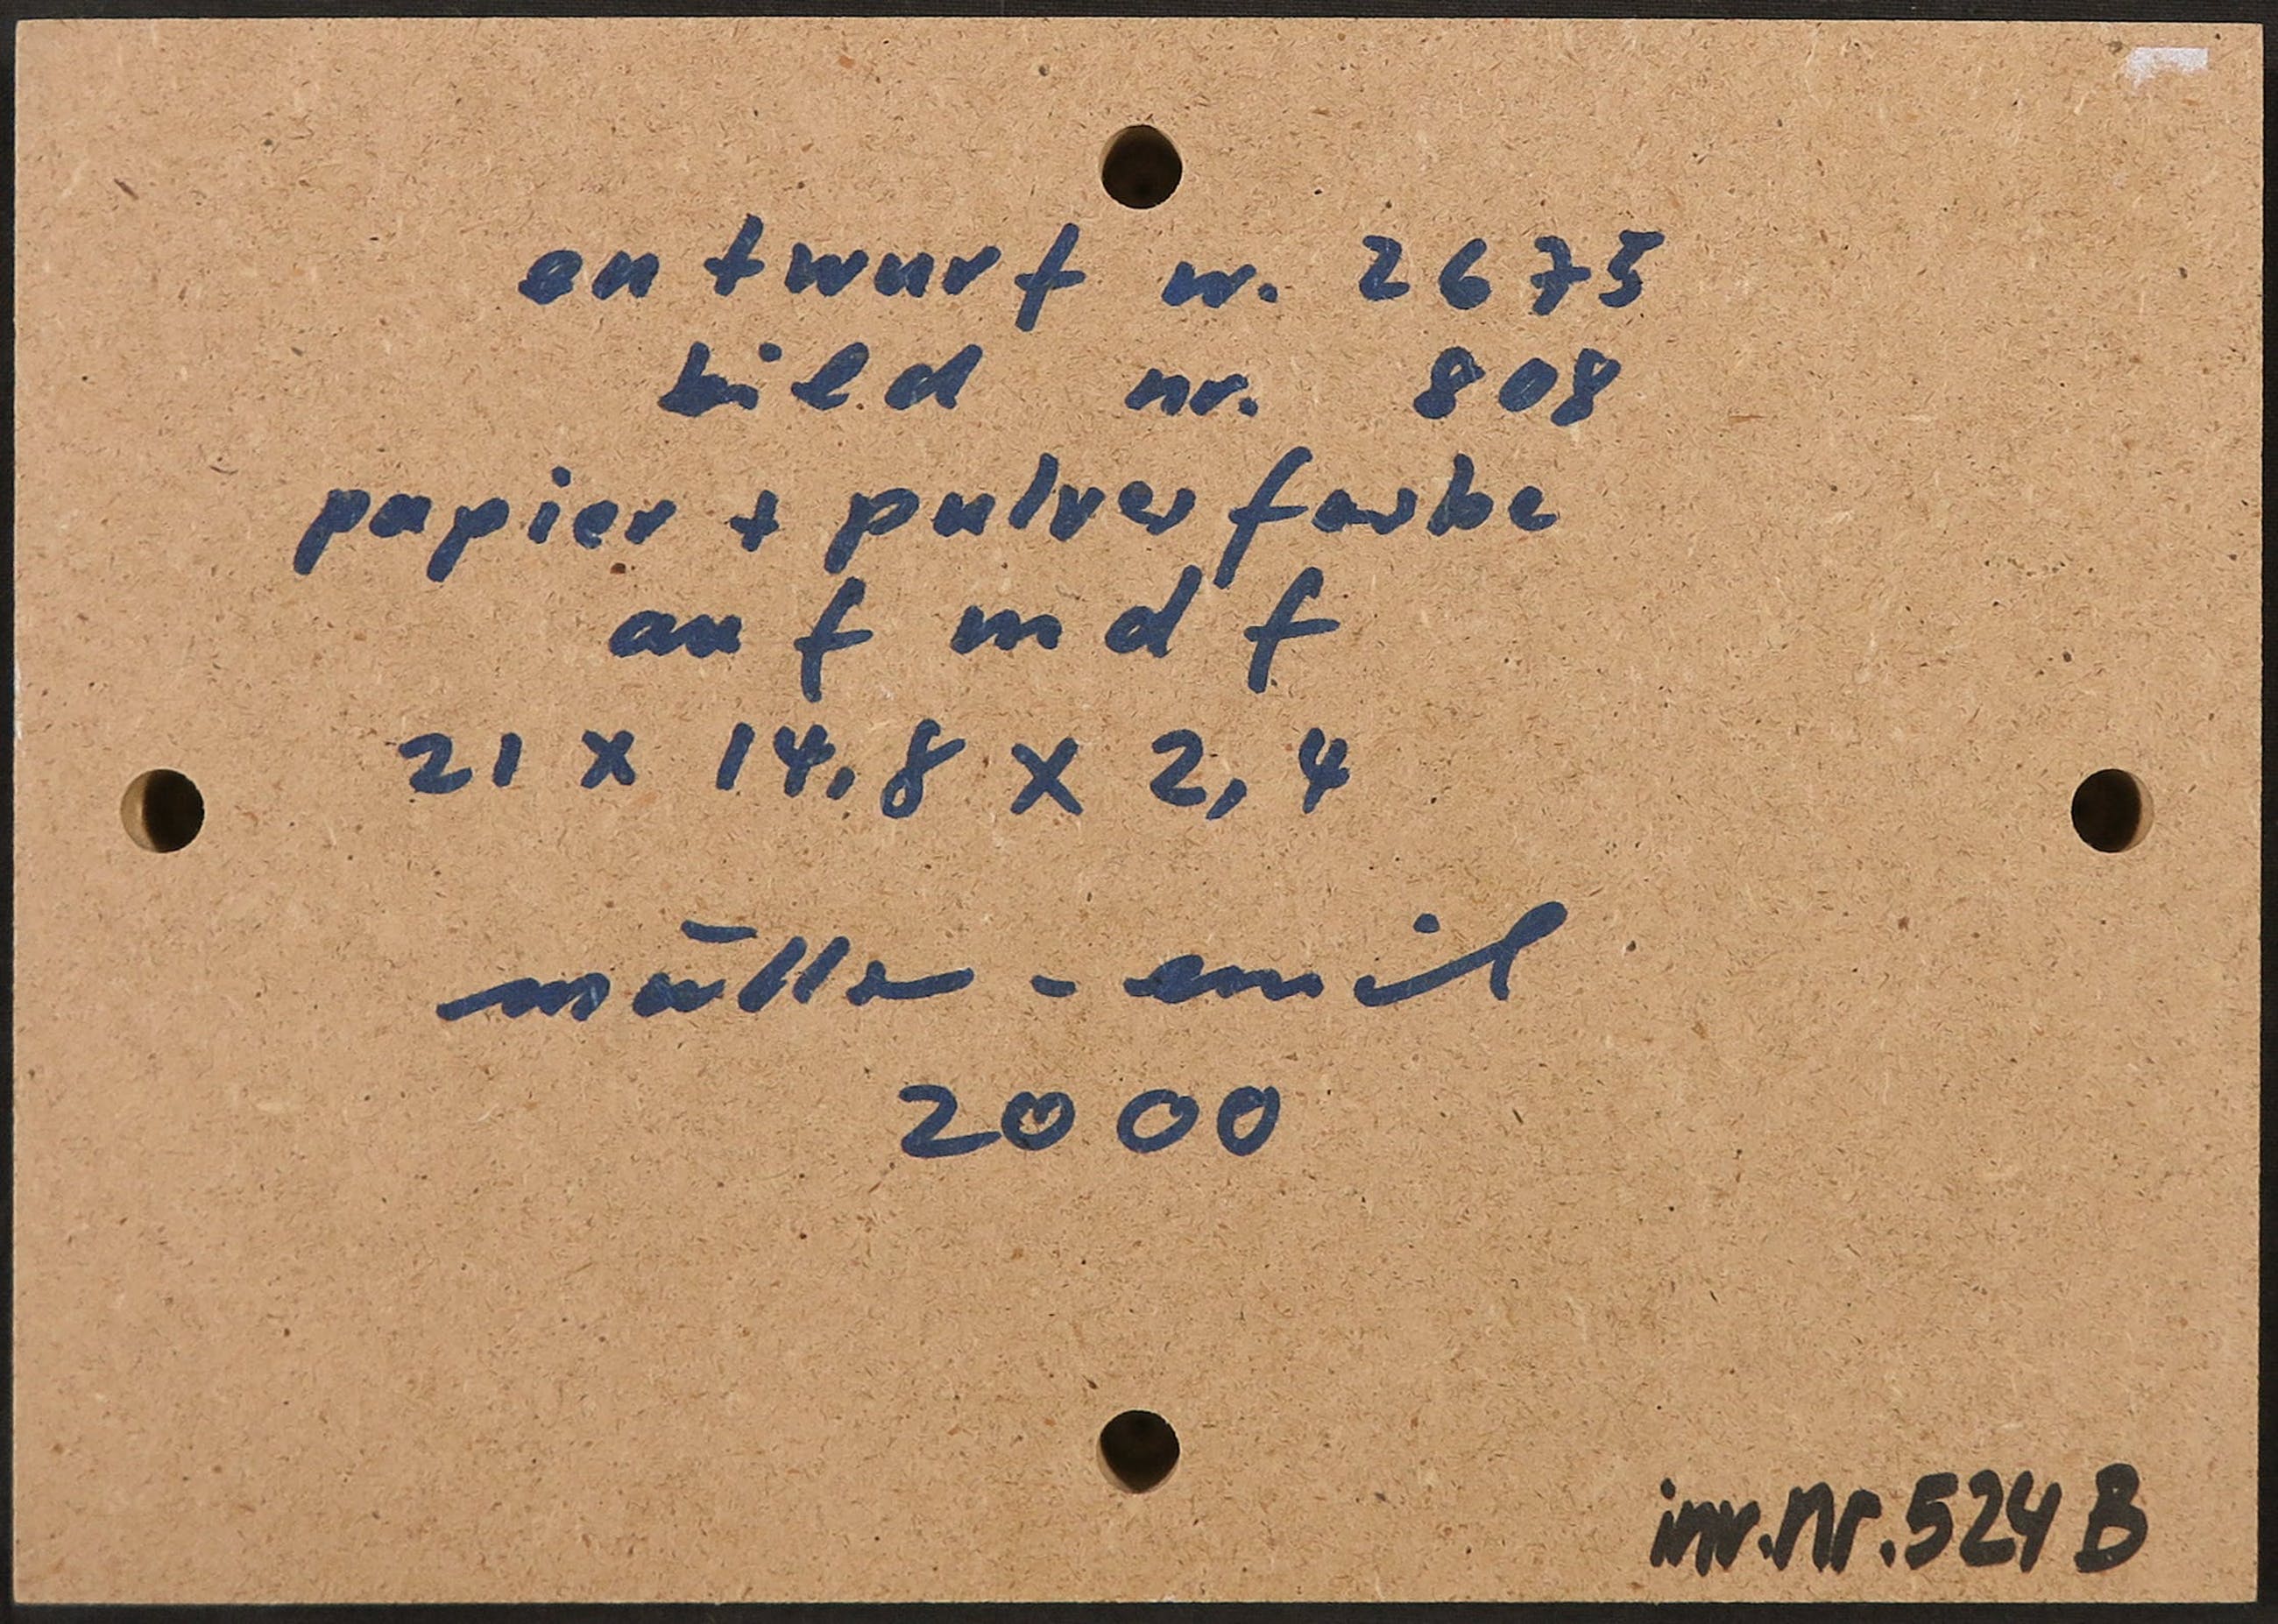 entwurf nr. 2675
bild nr. 808
papier + pulverfarbe
auf mdf
21 x 14,8 x 2,4
müller-emil
2000
inv.nr.524 B